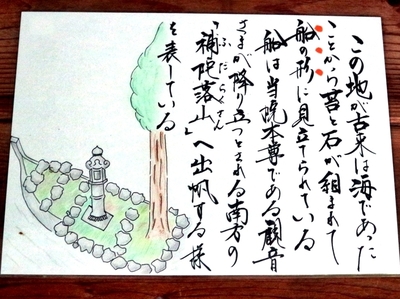 この地が古来は海であった
ことから苔と石が組まれて
船の形に見立てられている
船は当院本尊である観音
さまが降り立つとされる南方の
「補陀落山」へ出帆する様
ふだらくさん
を表している